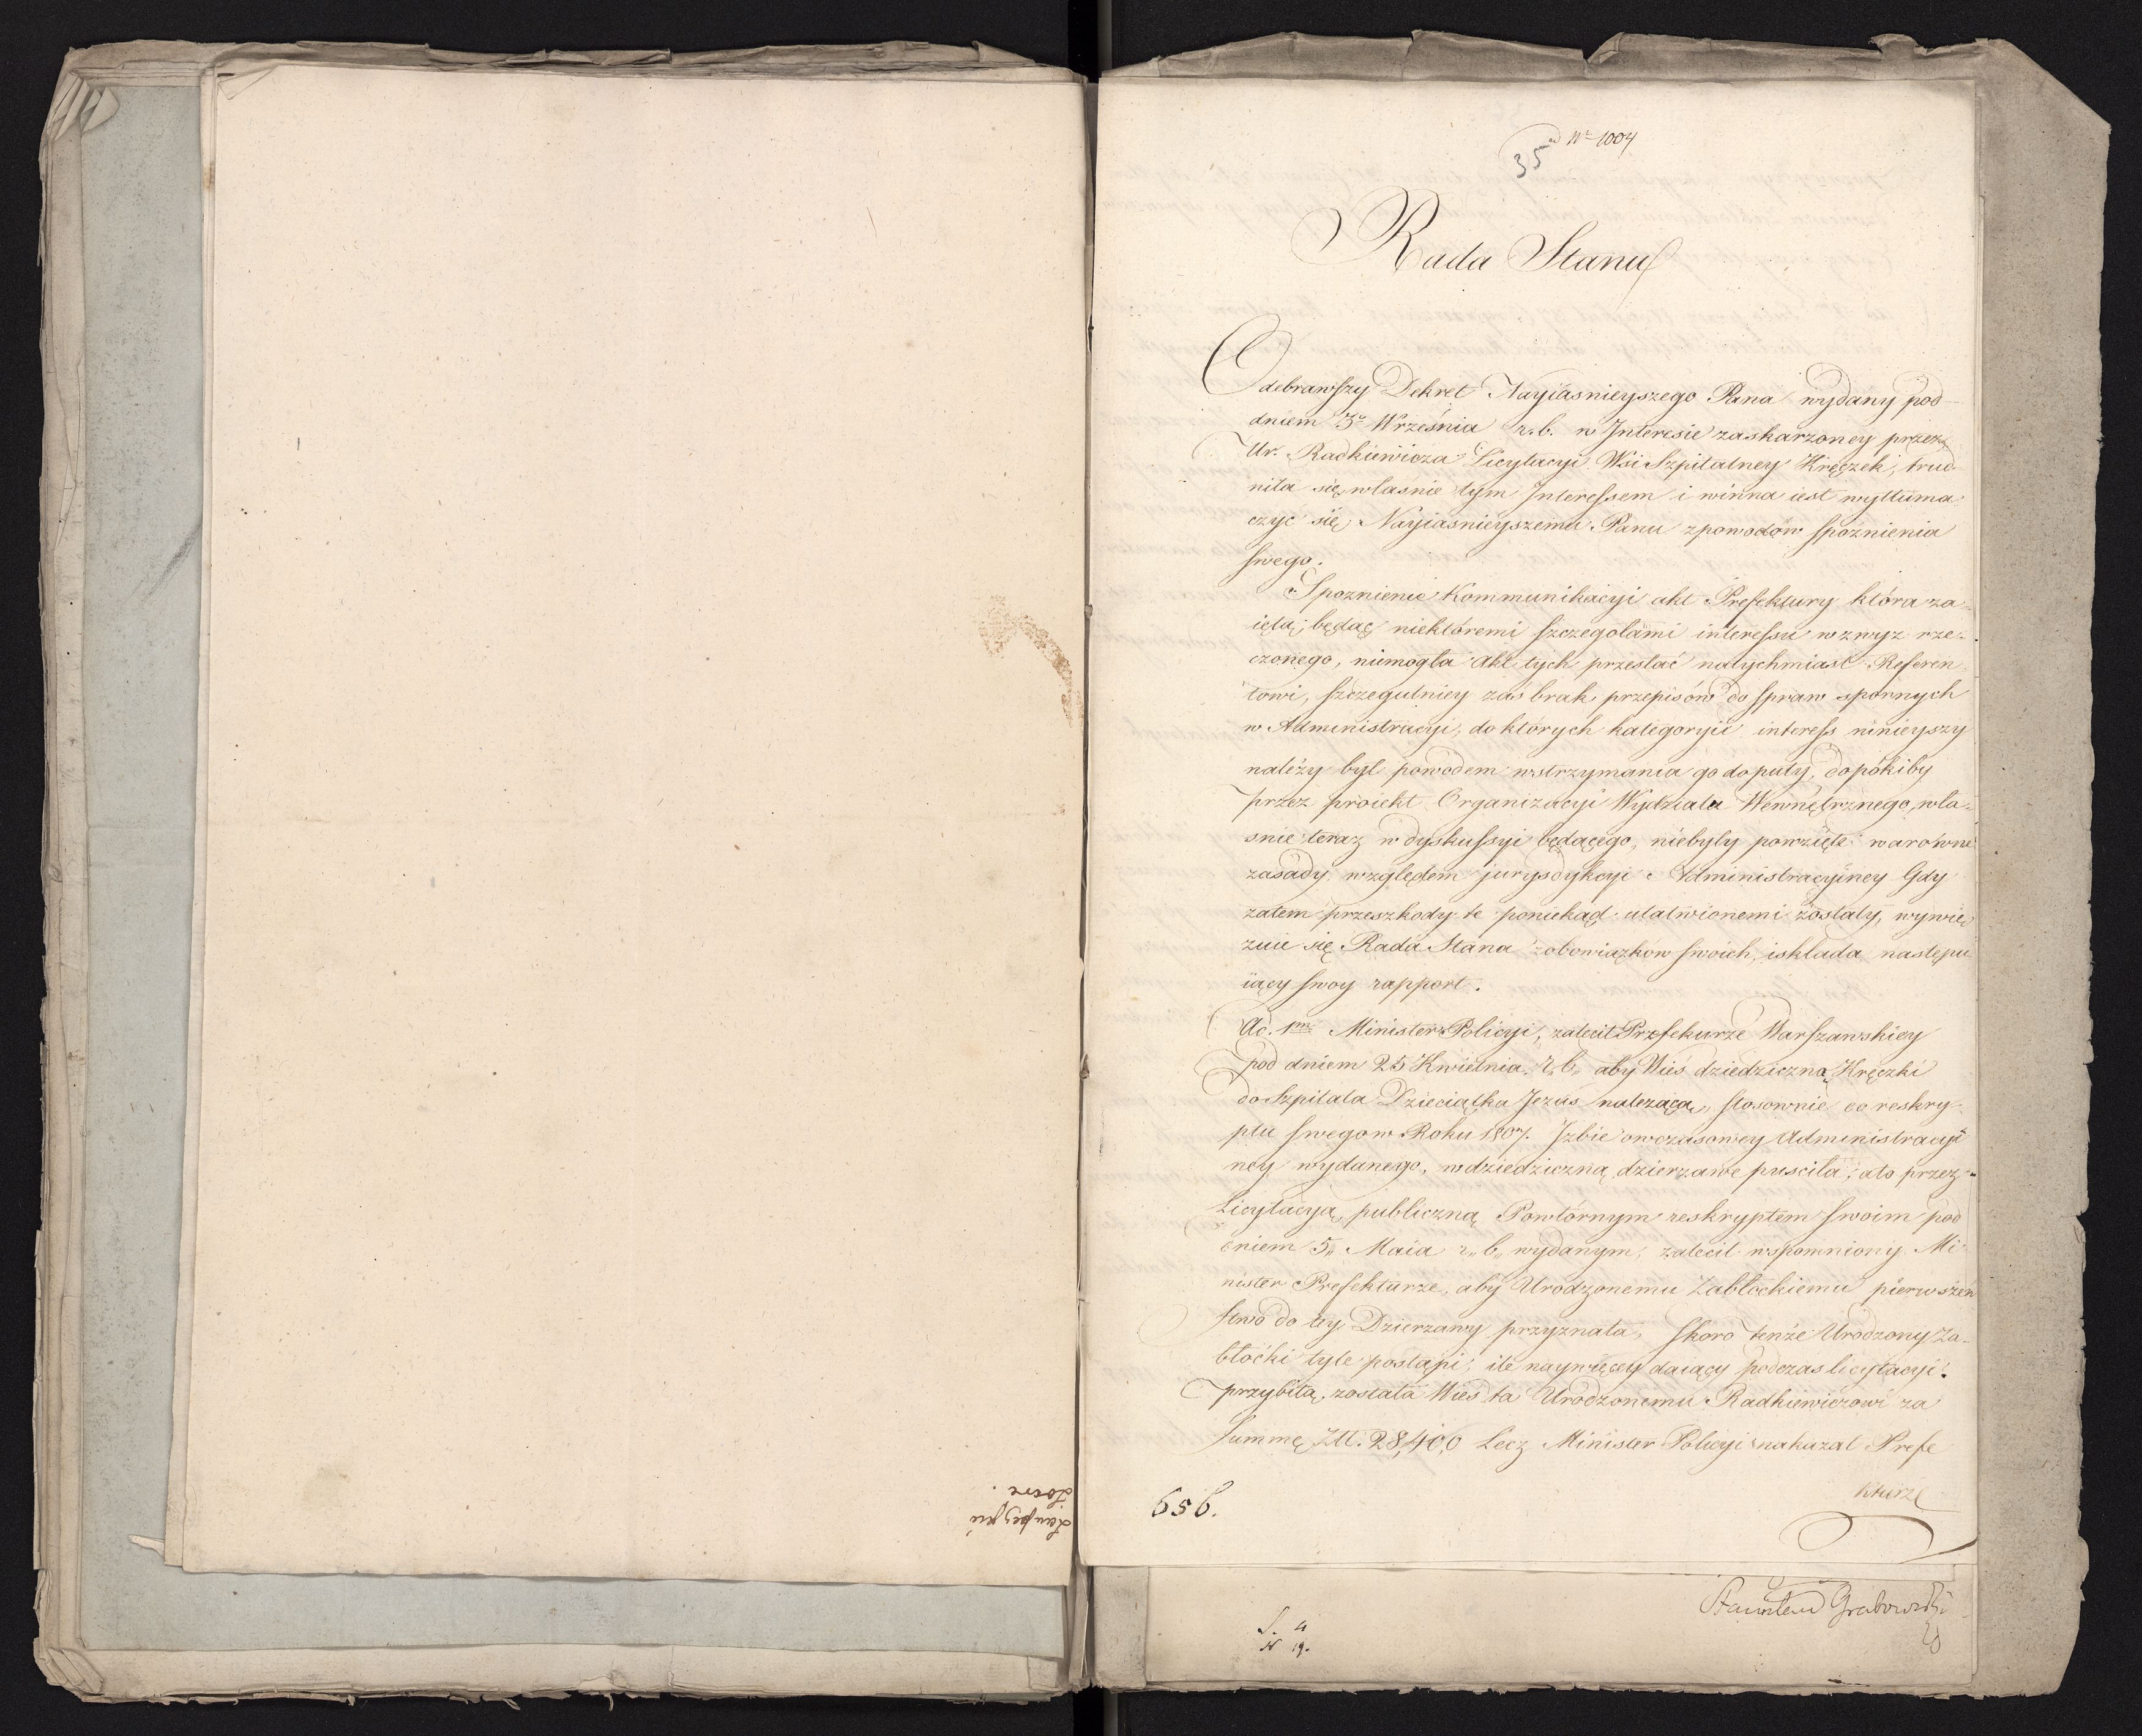 35 ad Nr 1004
Rada Stanu
Odebrawszy Dekret Nayiasnieyszego Pana wydany pod
dniem 3° Września r. b. w Interesie zaskarzoney przez
Ur. Radkiewicza Licytacyi Wsi Szpitalney Kręczek, trud
niła się własnie tym Interessem i winna iest wytłuma
czyć się Nayiasnieyszemu Panu z powodów spoźnienia
swego.
Spoznienie Kommunikacyi akt Prefektury która za-
iętą będąc niektóremi szczegolami interessu wzwyż rze-
czonego, niemogła akt tych przesłać natychmiast Referen
towi, szczegulniey zaś brak przepisów do spraw spornych
w Administracyi, do których kategoryii interess ninieyszy
należy był powodem wstrzymania go doputy, dopókiby
przez proiekt Organizacyi Wydziału Wewnętrznego, wła-
snie teraz w dyskussyi będącego, niebyły powzięte warówne
zasady względem jurysdykcyi Administracyiney Gdy
zatem przeszkody te poniekąd ułatwionemi zostały, wywię
zuie się Rada Stanu z obowiązkow swoich, i składa następu
iący swoy rapport.
Ad. 1mm Minister Policyi, zalecił Prefekurze Warszawskiey
pod dniem 25 Kwietnia r. b. aby Wieś dziedziczną Kręczki
do Szpitala Dzieciątka Jezus nalezącą, stosownie do reskry-
ptu swego w Roku 1807. Izbie owczasowey Administracyi
ney wydanego, w dziedziczną dzierzawe pusciła, a to przez
Licytacyą publiczną Powtórnym reskryptem swoim pod
dniem 5. Maia r. b. wydanym, zalecił wspomniony Mi
nister Prefekturze, aby Urodzonemu Zabłockiemu pierwszeń
stwo do tey Dzierzawy przyznała, skoro tenże Urodzony Za-
błocki tyle postąpi, ile naywięcey daiący podczas licytacyi.
przybitą została Wieś ta Urodzonemu Radkiewiczowi za
Summę Złł. 28,400 Lecz Minister Policyi nakazał Prefe
kturze
656.
Stanisław Grabowski
S. 4
N 19.